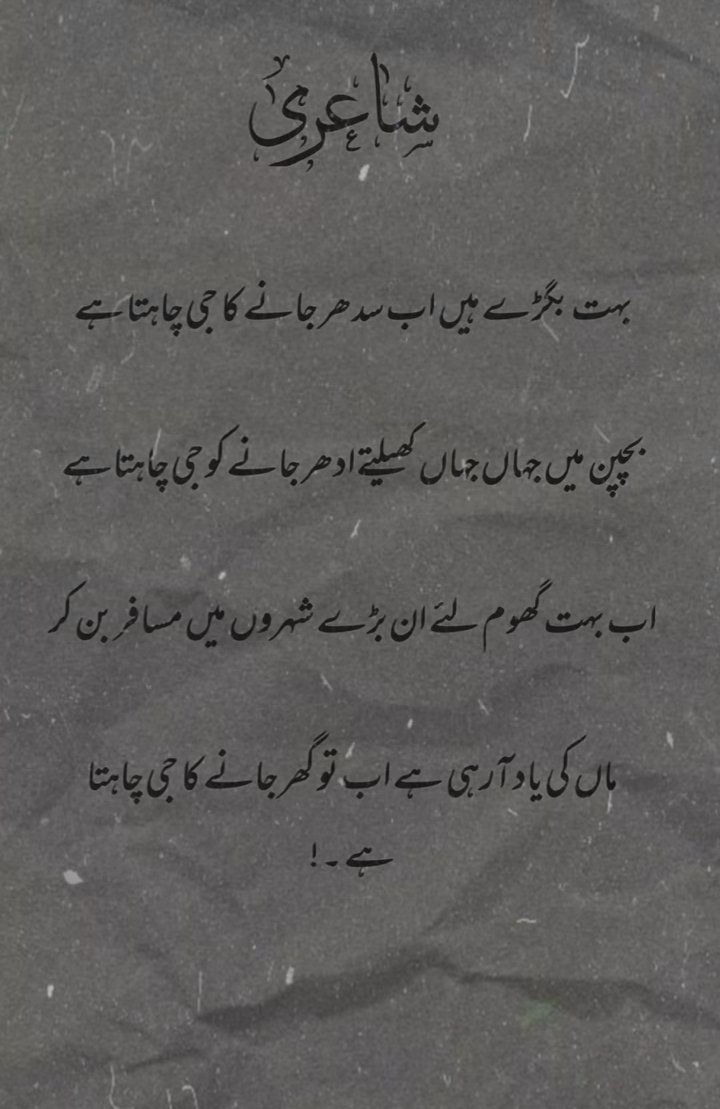 شاعری
بہت بگڑے ہیں اب سدھر جانے کا جی چاہتا ہے
بچپن میں جہاں جہاں کھیلتے ادھر جانے کو جی چاہتا ہے
اب بہت گھوم لئے ان بڑے شہروں میں مسافر بن کر
ماں کی یاد آ رہی ہے اب تو گھر جانے کا جی چاہتا
ہے ۔ !